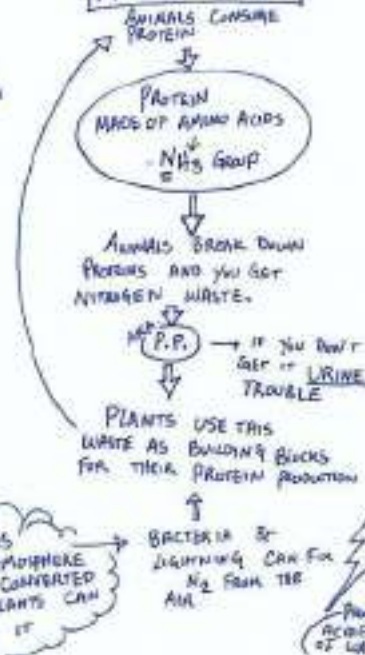 ANIMALS CONSUME
PROTEIN
PROTEIN
MADE OF AMINO ACIDS
NH3 GROUP
ANIMALS BREAK DOWN
PROTEINS AND YOU GET
NITROGEN WASTE.
P.P.
→ IF YOU DON'T
GET IT URINE
TROUBLE
PLANTS USE THIS
WASTE AS BUILDING BLOCKS
FOR THEIR PROTEIN PRODUCTION
BACTERIA &
LIGHTNING CAN FIX
N2 FROM THE
AIR
MOSPHERE
CONVERTED
LANTS CAN
IT
ACIDS
OF